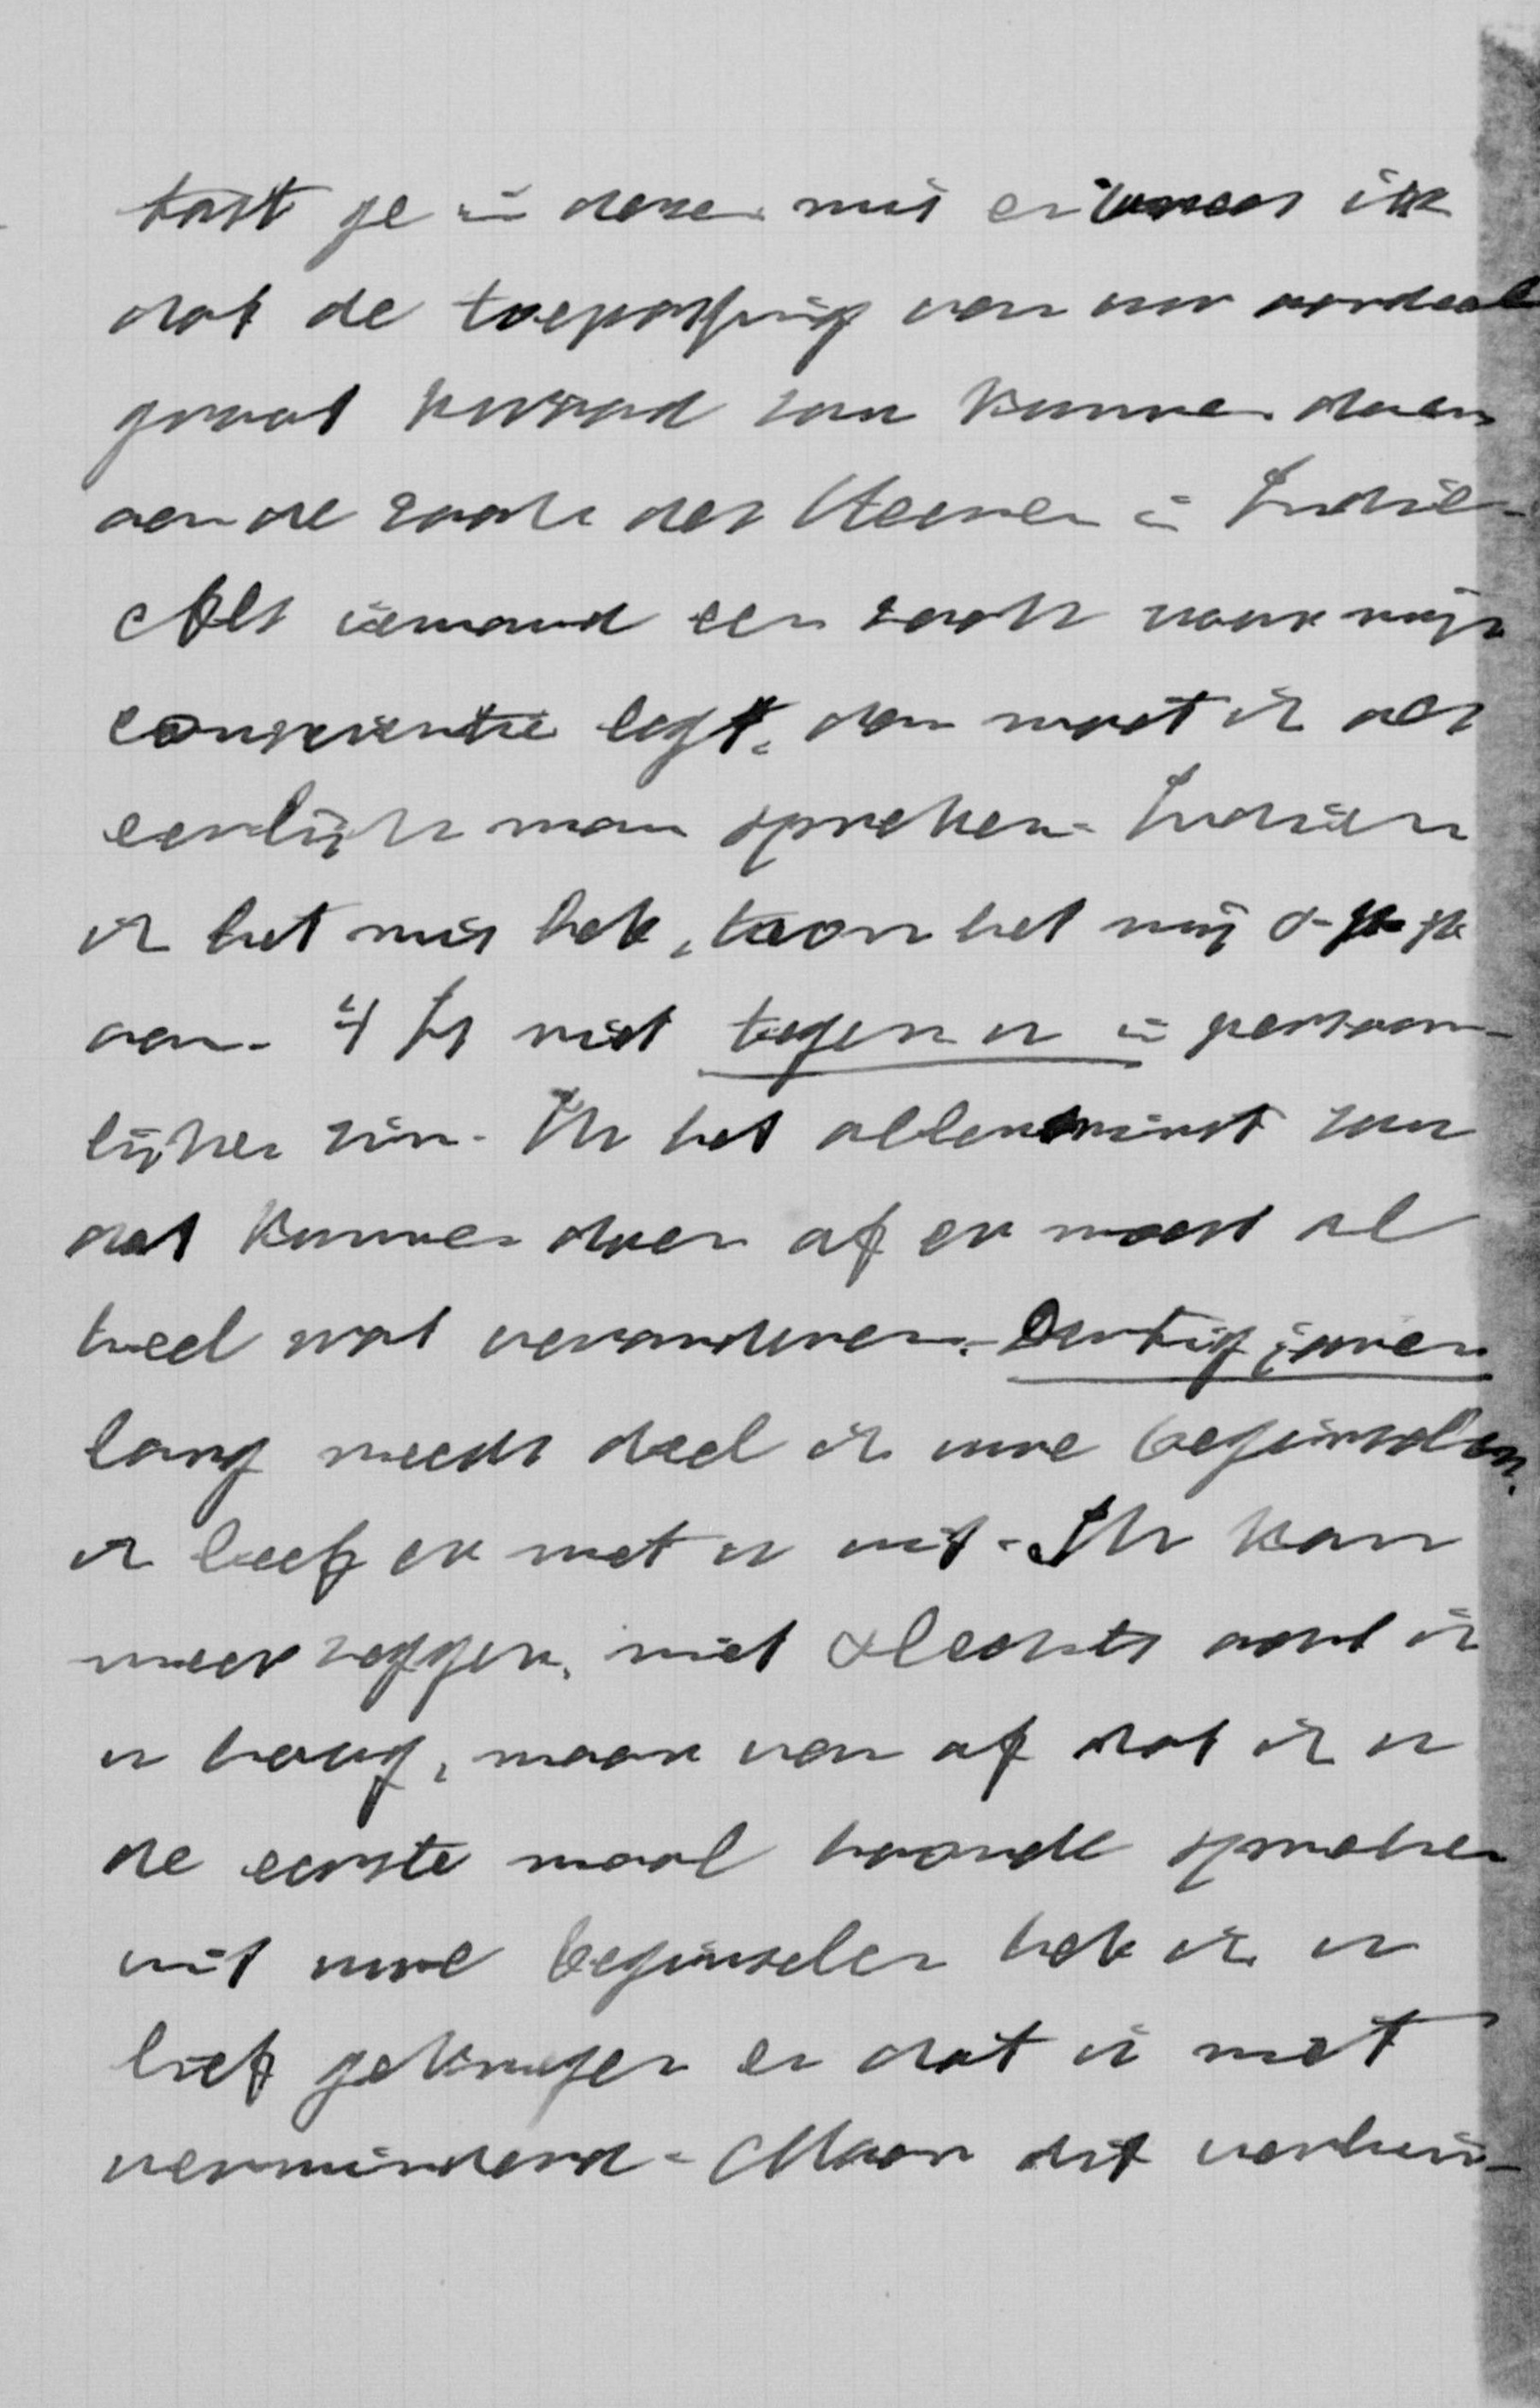 tast ge in deze mis en vrees ik
dat de toepassing van uw oordeel
groot kwaad zou kunnen doen
aan de zaak des Heeren in Indië.
Als iemand een zaak voor mijn
conscientie legt, dan moet ik als
eerlijk man spreken. Indien
ik het mis heb, toon het mij
aan. 't Is niet tegen u in persoon-
lijken zin. Ik het allerminst zou
dat kunnen doen of er moest al
heel wat veranderen. Dertig jaren
lang reeds deel ik uwe beginselen.
ik leef er met u uit. Ik kan
meer zeggen, niet slechts acht ik
u hoog, maar van af dat ik u
de eerste maal hoorde spreken
uit uwe beginselen heb ik u
lief gekregen en dat is niet
verminderd. Maar dit verhin-